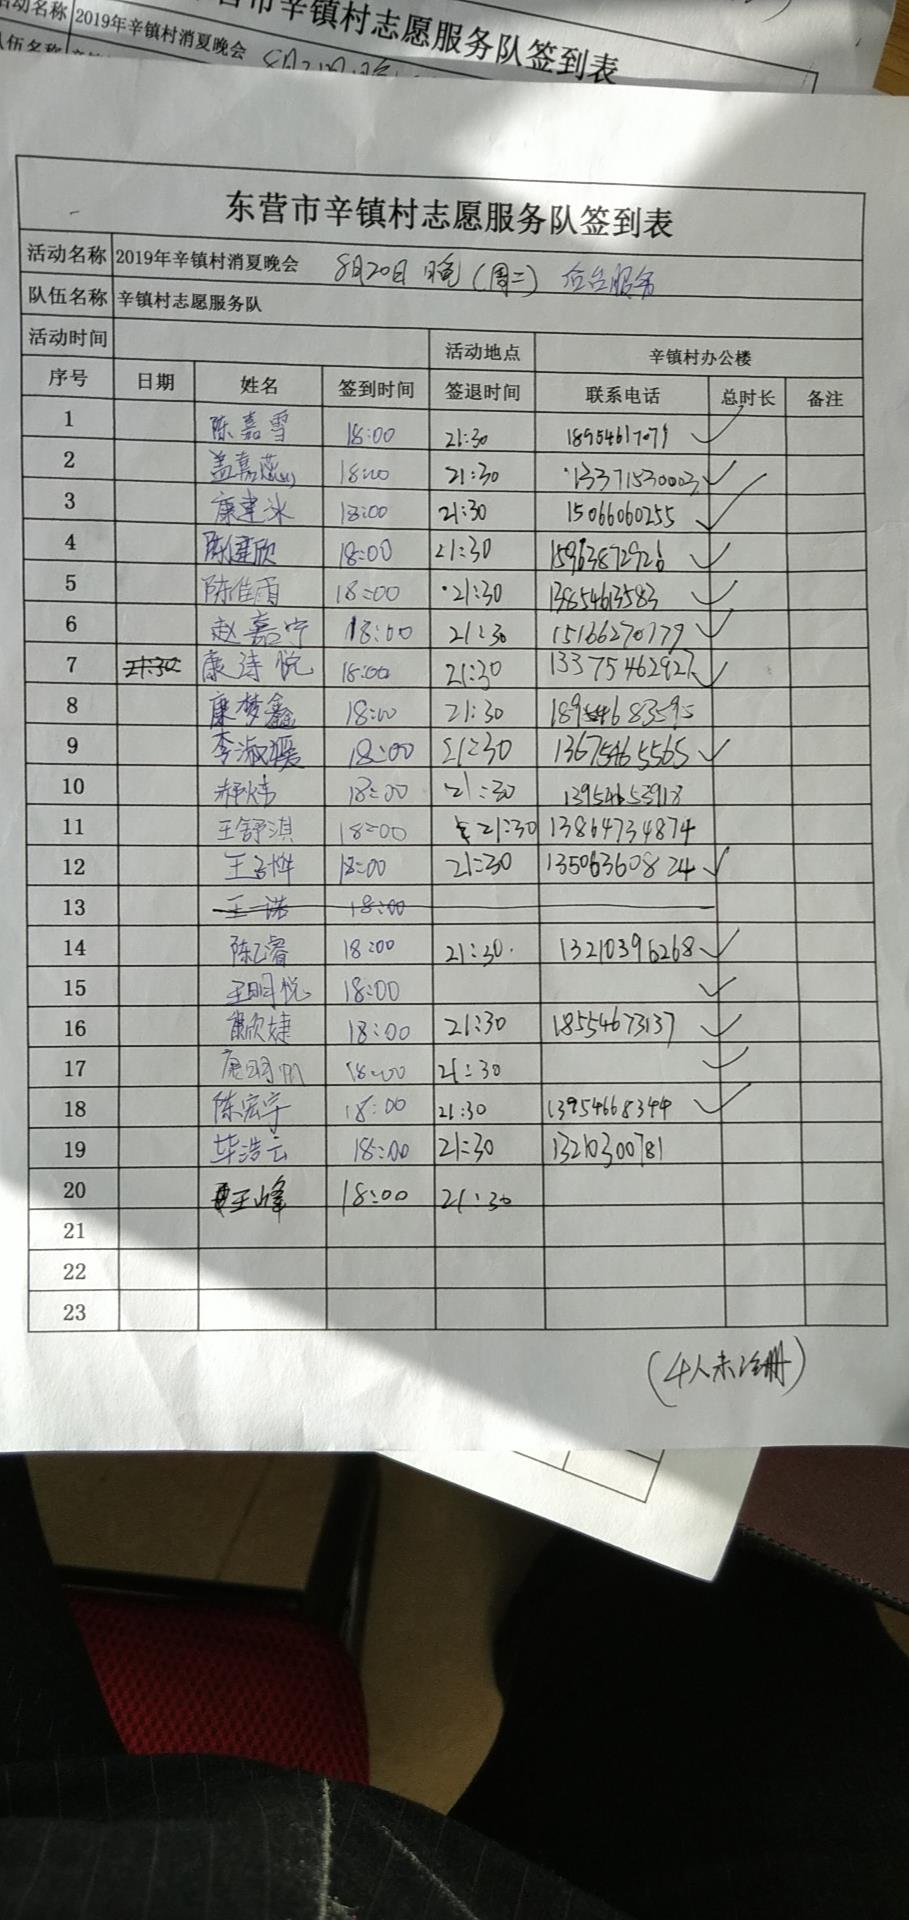 活动名称 2019年辛镇村消夏晚会
志愿服务队签到表
东营市辛镇村志愿服务队签到表
活动名称 2019年辛镇村消夏晚会 8月20日 晚 (周二) 后台服务
队伍名称 辛镇村志愿服务队
活动时间 活动地点 辛镇村办公楼
序号 日期 姓名 签到时间 签退时间 联系电话 总时长 备注
1 陈嘉雪 18:00 21:30 18954617079 ✓
2 盖嘉蕊 18:00 21:30 13371530003 ✓
3 康建冰 18:00 21:30 15066060255 ✓
4 陈健欣 18:00 21:30 15963872926 ✓
5 陈佳雨 18:00 21:30 13854613583 ✓
6 赵嘉宁 18:00 21:30 15166270179 ✓
7 21:30 康诗悦 18:00 21:30 13375462927 ✓
8 康梦鑫 18:00 21:30 18954683595
9 李淑媛 18:00 21:30 13675465565 ✓
10 18:00 21:30 13954653918
11 王舒淇 18:00 21:30 13864734874
12 王子烨 18:00 21:30 13506360824 ✓
13 王诺 18:00
14 陈乙睿 18:00 21:30 13210396268 ✓
15 王明悦 18:00 ✓
16 康欣婕 18:00 21:30 18554673137 ✓
17 18:00 21:30 ✓
18 陈宏宇 18:00 21:30 13954668344 ✓
19 毕浩云 18:00 21:30 13210300781
20 王峰 18:00 21:30
21
22
23
(4人未注册)